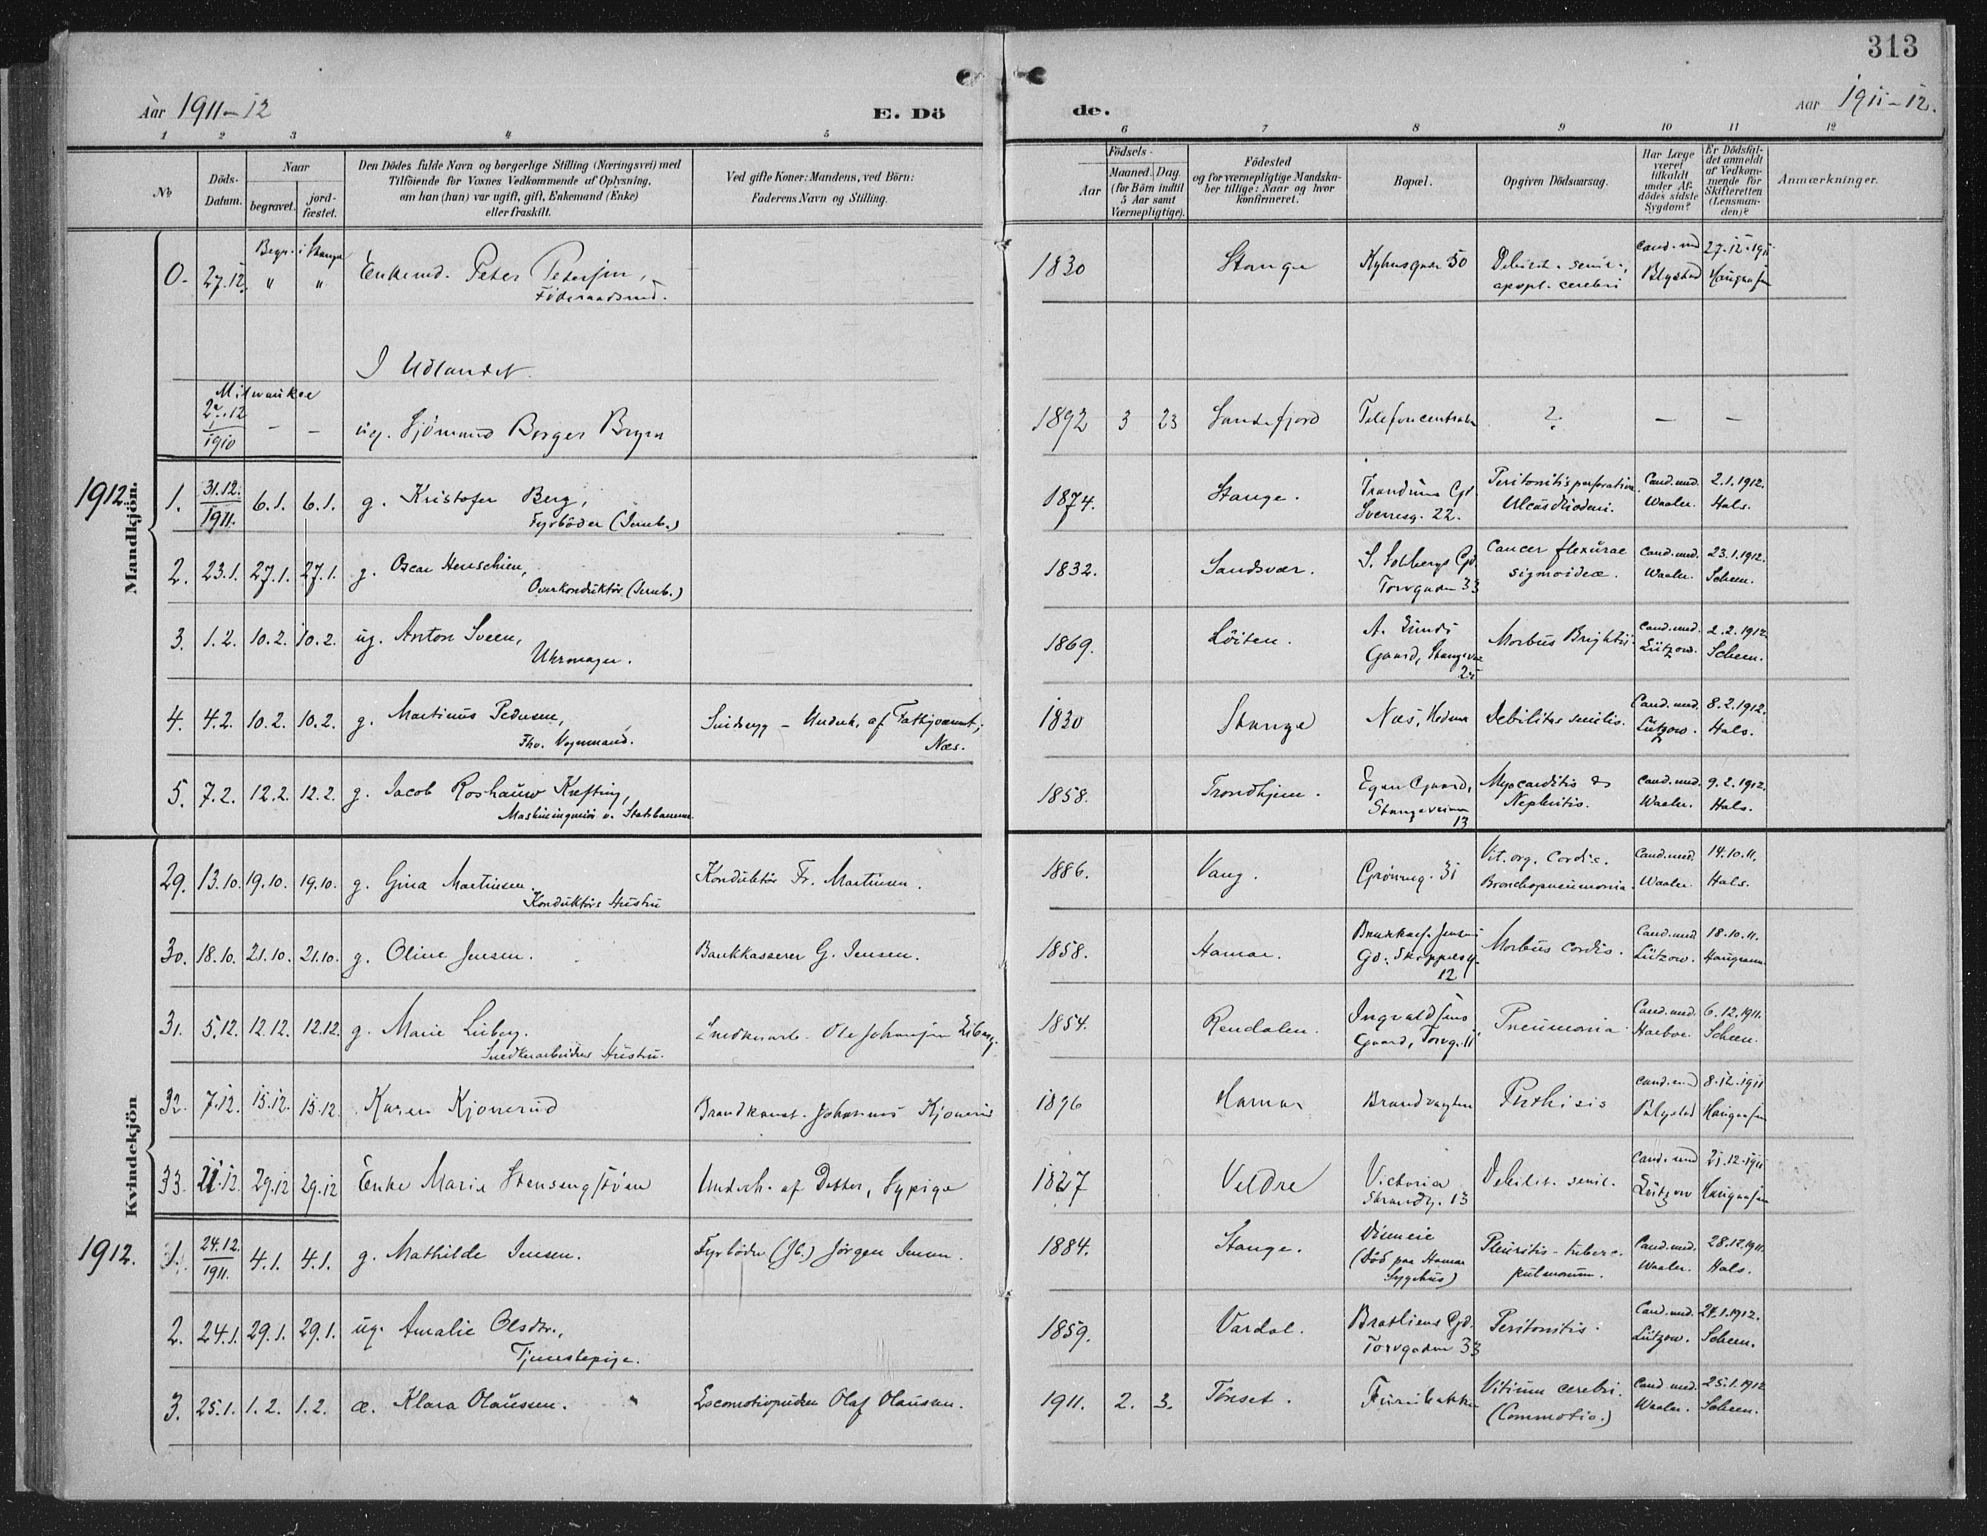 313
Aar 1911-12
E. Dö
de.
Aar 1911-12.
1 2 3 4 5 6 7 8 9 10 11 12
No
Döds-Datum.
Naar
begravet.
jord-fæstet.
Den Dödes fulde Navn og borgerlige Stilling (Næringsvei) med
Tilföiende for Voxnes Vedkommende af Oplysning,
om han (hun) var ugift, gift, Enkemand (Enke)
eller fraskilt.
Ved gifte Koner: Mandens, ved Börn:
Faderens Navn og Stilling.
Födsels-
Aar
Maaned. Dag.
(for Börn indtil
5 Aar samt
Værnepligtige).
Födested
og for værnepligtige Mandska-
ber tillige: Naar og hvor
konfirmeret.
Bopæl.
Opgiven Dödsaarsag.
Har Læge
været
tilkaldt
under Af-
dödes sidste
Sygdom?
Er Dödsfal-
det anmeldt
af Vedkom-
mende for
Skifteretten
(Lensman-
den)?
Anmærkninger.
Mandkjön.
Begr. i Stange
0. 27.12. " " Enkemd. Peter Petersen,
Föderaadsmd.
1830 Stange 50 Debilit. senil.,
apopl. cerebri
Cand. med Blystad
27-12-1911
I Udlandet.
Milwaukee
1910 - - ug. Sjömand Borger Bryn
1892 3 23 Sandefjord Telefoncentralen ? - -
1912.
1. 31.12. 1911. 6.1. 6.1. g. Kristofer Berg,
Fyrböder (Jernb.)
1874. Stange. Gd.
Sverresg. 22.
Peritonitis perforativa.
Ulcus duodeni.
Cand. med. Waaler. 2.1.1912. Hals.
2. 23.1. 27.1. 27.1. g. Oscar Henschien,
Overkonduktör (Jernb.)
1832. Sandsvær. S. Solbergs Gd.
Torvgaden 33
Cancer flexurae
sigmoideæ.
Cand. med. Waaler. 23.1.1912. Scheen.
3. 1.2. 10.2. 10.2. ug. Anton Sveen,
Uhrmager.
1869. Löiten. A. Sunds
Gaard, Stangevei
Morbus Brightii.
Cand. med. Lützow. 2.2.1912. Scheen.
4. 4.2. 10.2. 10.2. g. Martinus Pedersen,
Fhv. Vognmand.
Svidsegg - Underh. af Fattigvæsnet,
Næs.
1830 Stange Næs, Hedem Debilitas senilis.
Cand. med. Lützow. 8.2.1912. Hals.
5. 7.2. 12.2. 12.2. g. Jacob Roshauw Krefting,
Maskiningeniör v. Statsbanerne
1858. Trondhjem. Egen Gaard,
Stangeveien
13
Myocarditis &
Nephritis.
Cand. med. Waaler. 9.2.1912. Hals.
Kvindekjön
29. 13.10. 19.10. 19.10. g. Gina Martinsen.
Konduktörs Hustru
Konduktör Fr. Martinsen.
1886. Vang. Grönneg. 31 Vit. org. Cordis.
Bronchopneumonia.
Cand. med Waaler. 14.10.11. Hals.
30. 18.10. 21.10. 21.10. g. Oline Jensen.
Bankkasserer G. Jensen.
1858. Hamar. Bankkas. Jensens
Gd. Skappelsg.
12
Morbus cordis.
Cand. med Lützow. 18.10.11.
31. 5.12. 12.12. 12.12. g. Marie Liberg.
Snedkerarbeiders Hustru.
Snedkerarb. Ole Johansen Liberg.
1854. Rendalen. Ingvaldsens
Gaard, Torvg. 11
Pneumonia.
Cand. med. 6.12.1911. Scheen.
32. 7.12. 15.12. 15.12. Karen Kjonerud
Brandkonst. Johannes Kjonerud
1896 Hamar Brandvagten Phthisis
Cand. med Blystad 8-12-1911
33. 21.12. 29.12 29.12 Enke Marie Stensengstöen
Underh. af Datter, Sypige
1827 Veldre Victoria
Strandg. 13
Debilit. senil.
Cand. med Lützow 21.12.1911
1912.
1. 24.12. 1911. 4.1. 4.1. g. Mathilde Jensen.
Fyrböder (Jb.) Jörgen Jensen.
1884. Stange. Disenvie
(död paa Hamar
Sygehus)
Pleuritis - tuberc.
pulmonum.
Cand. med. Waaler. 28.12.1911. Hals.
2. 24.1. 29.1. 29.1. ug. Amalie Olsdtr.,
Tjenestepige.
1859. Vardal. Bratliens Gd.
Torvgaden 33
Peritonitis.
Cand. med. Lützow. 24.1.1912. Scheen.
3. 25.1. 1.2. 1.2. æ. Klara Olaussen.
Locomotivpudser Olaf Olaussen.
1911. 2. 3. Tönset. Furubakken Vitium cerebri.
(Commotio.)
Cand. med. Waaler. 25.1.1912 Scheen.